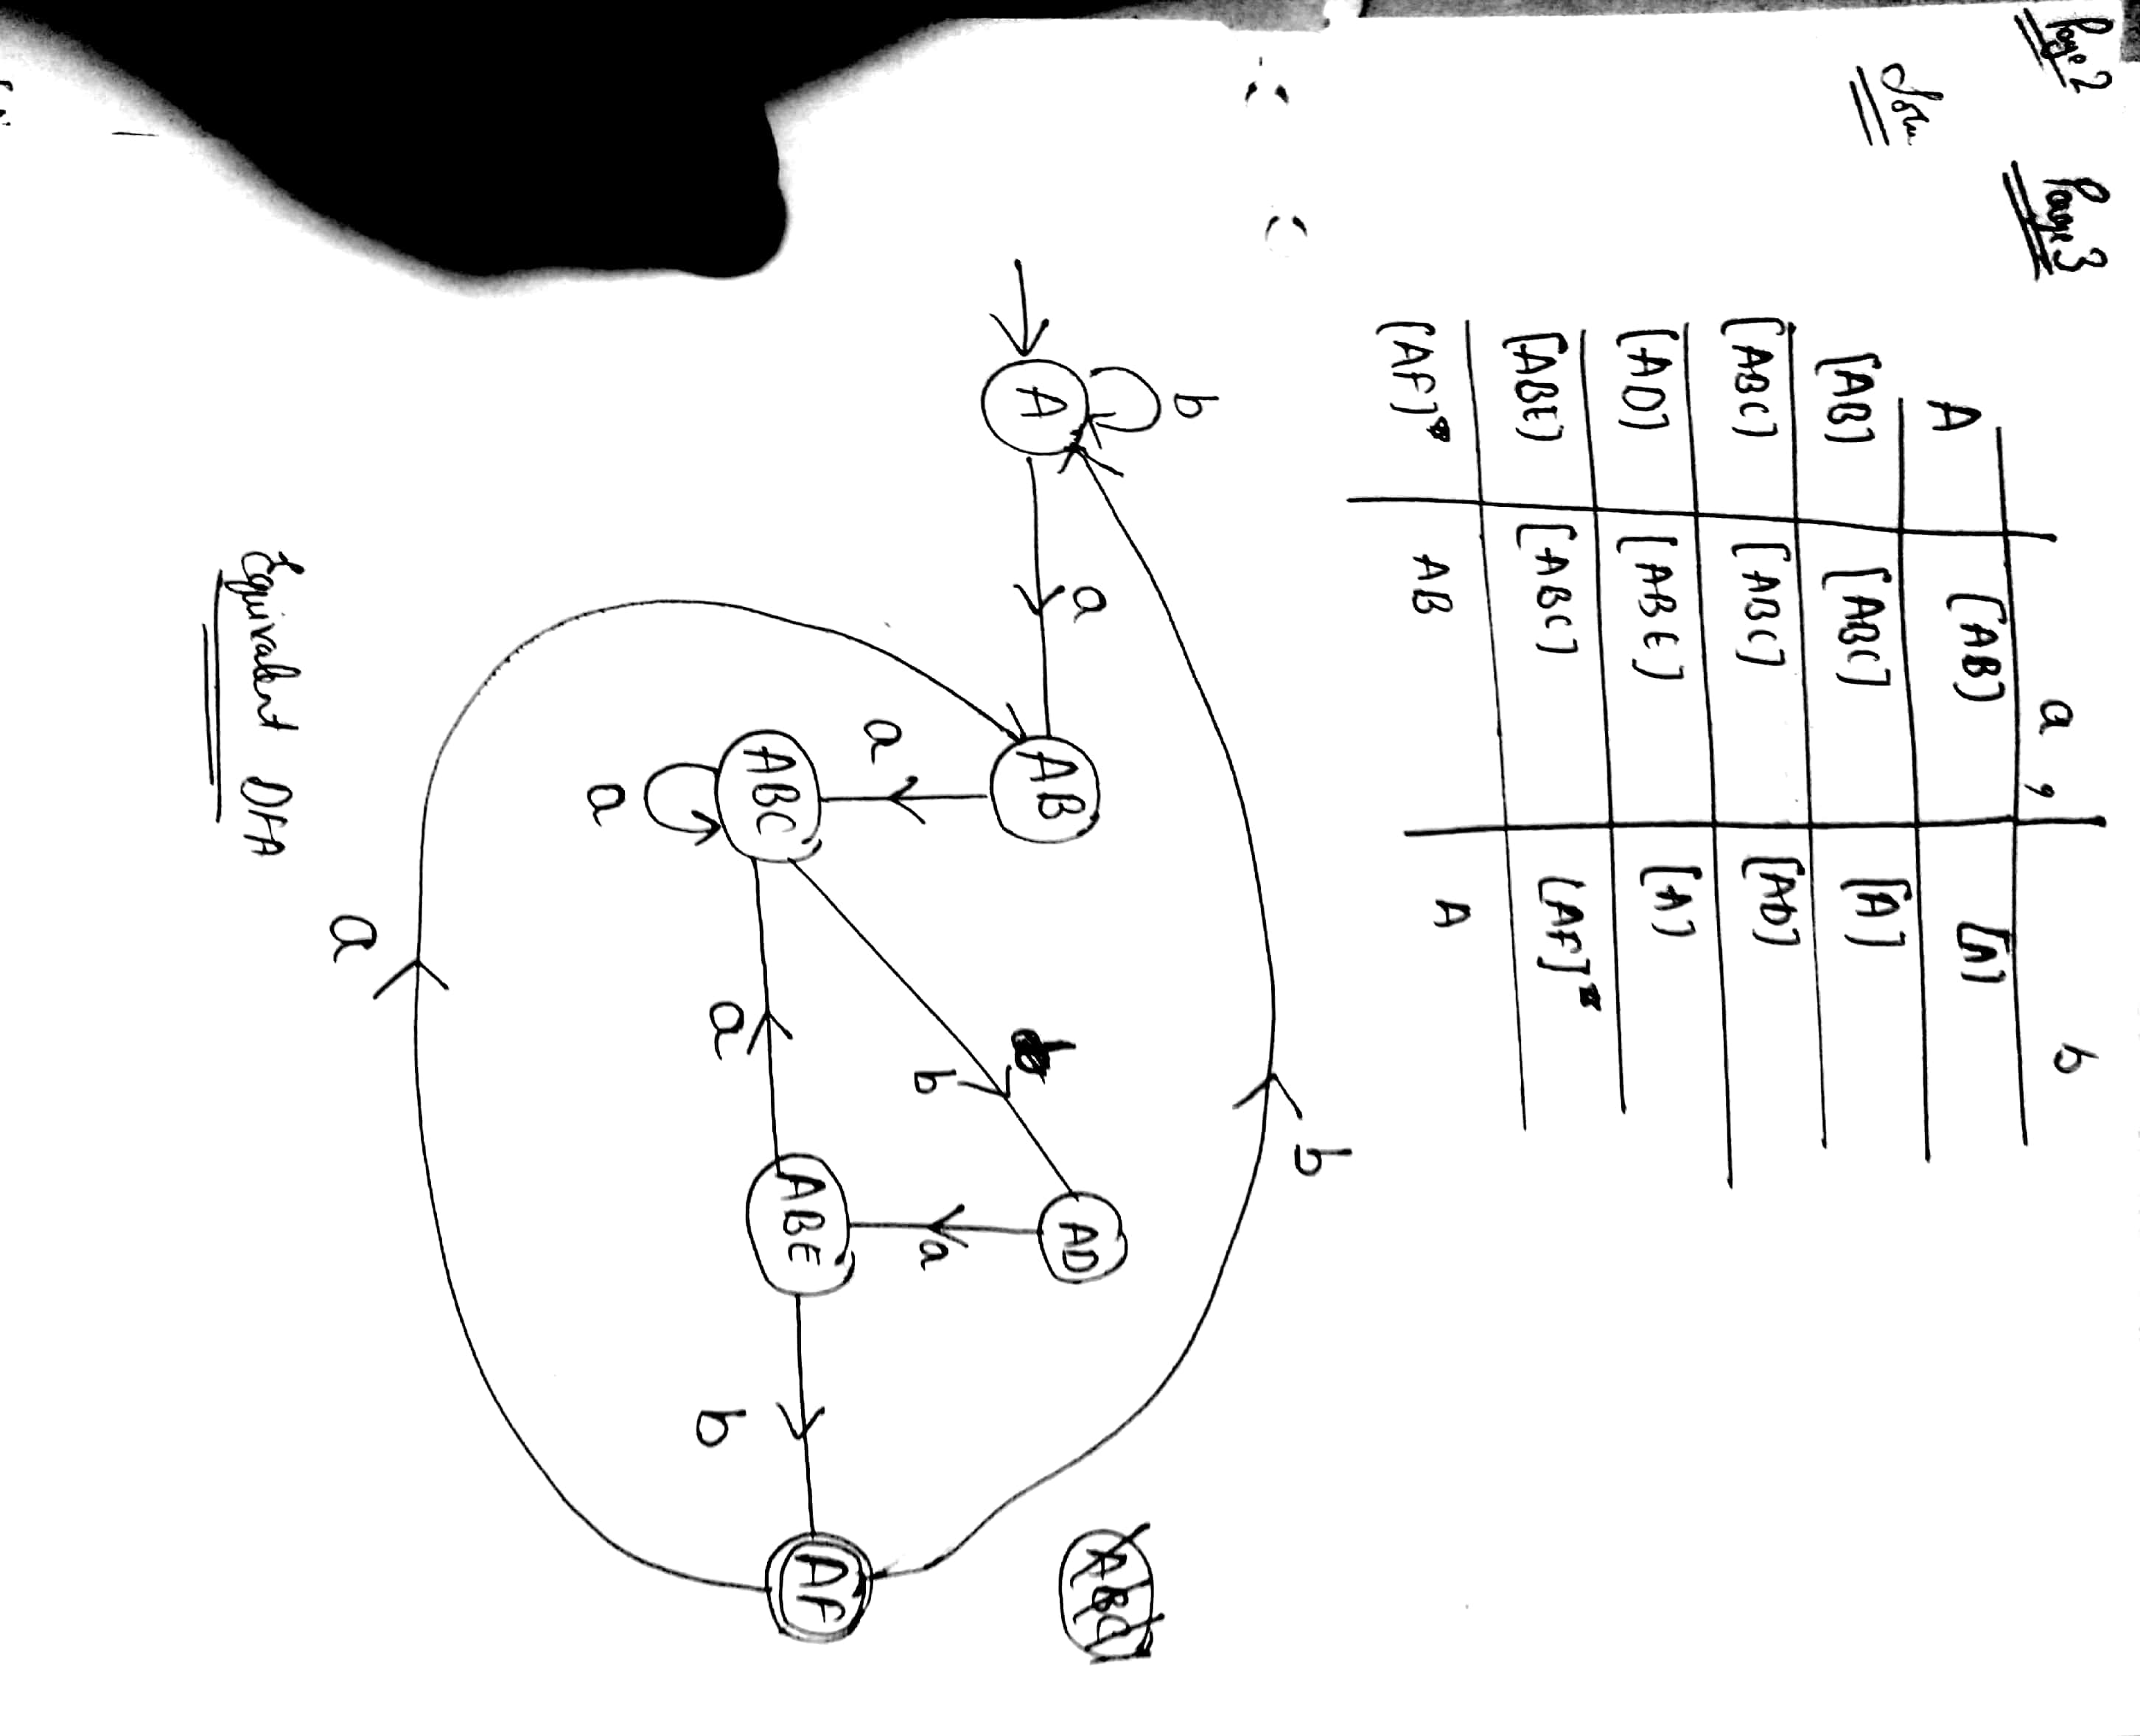 Page 2
Soln
Page 3
a , b
A [AB] [A]
[AB] [ABC] [A]
[ABC] [ABC] [AD]
[AD] [ABE] [A]
[ABE] [ABC] [AF]*
[AF]* AB A
b
b
A
a
AB
AD
b
a
a
ABC
a
ABE
b
AF
a
a
Equivalent DFA